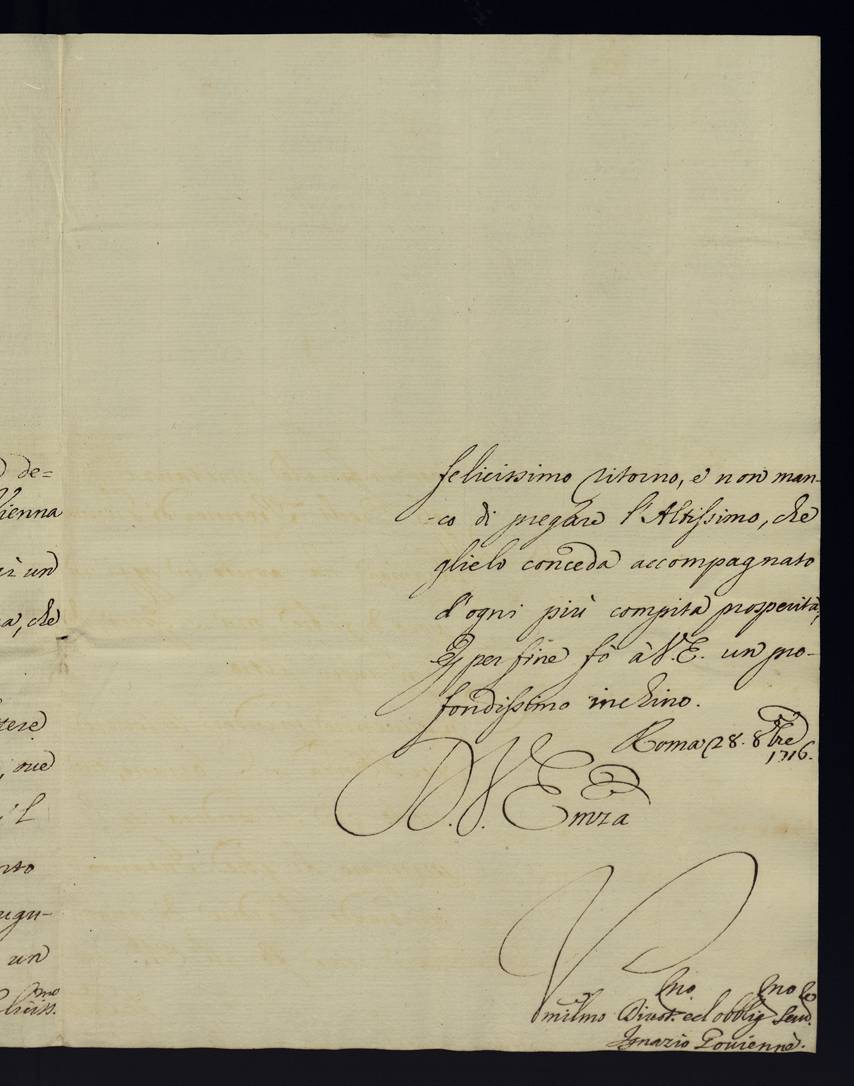 de=
Vienna
un
a, che
ove
il
un
felicissimo ritorno, e non man-
-co di pregare l'Altissimo, che
glielo conceda accompagnato
d'ogni più compita prosperità,
E per fine fò à V.E. un pro-
fondissimo inchino.
Roma 28. 8bre
1716.
D. V. Emza
Vmilmo Divot. ed obblig Serv.
Ignazio